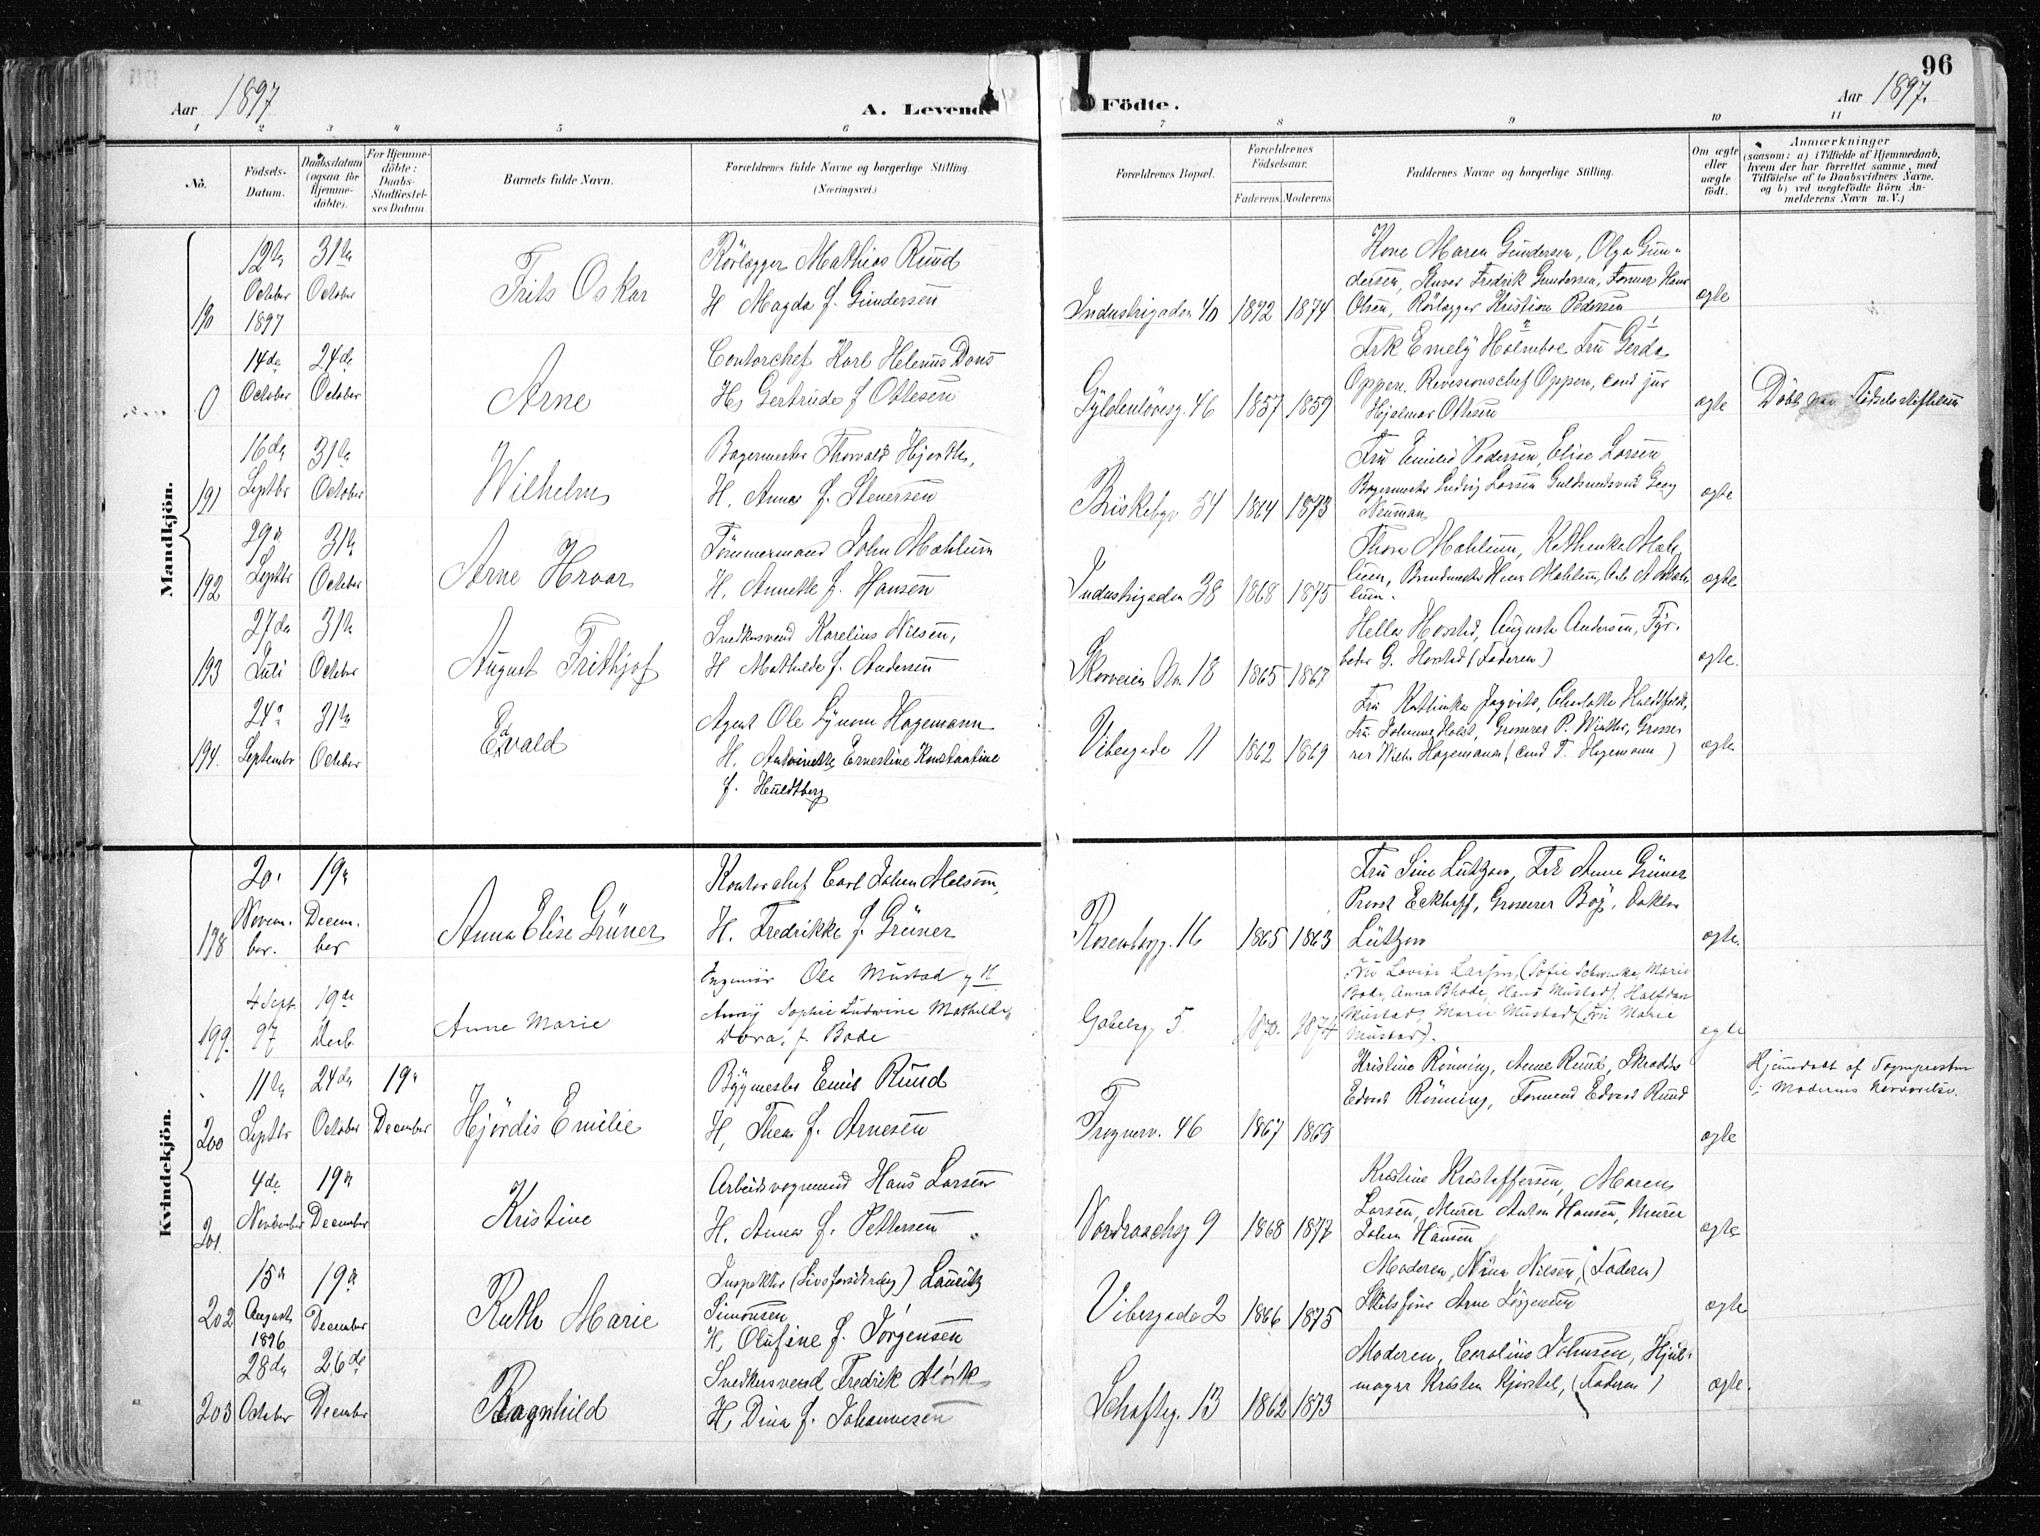 96
Aar 1897
A. Levende
Födte.
Aar 1897.
1 2 3 4 5 6 7 8 9 10 11
No.
Födsels-
Datum.
Daabsdatum
(ogsaa for
Hjemme-
döbte).
For Hjemme-
döbte:
Daabs-
Stadfæstel-
ses Datum
Barnets fulde Navn.
Forældrenes fulde Navne og borgerlige Stilling.
(Næringsvei.)
Forældrenes Bopæl.
Forældrenes
Födselsaar.
Faderens. Moderens.
Faddernes Navne og borgerlige Stilling.
Om ægte
eller
uægte
födt.
Anmærkninger
(saasom: a) i Tilfælde af Hjemmedaab,
hvem der har forrettet samme, med
Tilföielse af to Daabsvidners Navne,
og b) ved uægtefödte Börn An-
melderens Navn m. V.)
Mandkjön.
190
12te
October
1897
31te
October
Frits Oskar
Rörlægger Mathias Ruud
H Magda f. Gundersen
Industrigaden 40
1872 1874
Kone Maren Gundersen, Olga Gun-
dersen, Fredrik Gundersen, Former Hans
Olsen, Rörlægger Kristian Pedersen
ægte
0
14de
October
24de
October
Arne
Contorchef Karl Helenus Dons
H Gertrude f Ottesen
Gyldenlövesg. 46
1857 1859
Frk Emely Holmboe Fru Gerda
Oppen. Revisionschef Oppen, cand jur
Hjalmar Ottesen
ægte
Döbt Födselsstiftelsen
191
16de
Septbr
31te
October
Wilhelm
Bagermester Thorvald Hjorth,
H. Anna f. Stenersen
Briskebyv 54
1864 1873
Fru Emilie Pedersen, Elise Larsen
Bagermester Ludvig Larsen Guldsmedsvend Georg
Neuman
ægte
192
29de
Septbr
31te
October
Arne Hroar
Tömmermand John Mæhlum
H. Annette f. Hansen
Industrigaden 38
1868 1875
Thora Mæhlum, Kathinka Mæh-
lum, Brandmester Hans Mæhlum, Carl A Mæh-
lum.
ægte
193
27de
Juli
31te
October
August Frithjof
Snedkersvend Karelius Nilsen,
H Mathilde f. Andersen
Skovveien No. 18
1865 1867
Hella Horstad, Augusta Andersen, Fyr-
böder G. Horstad (Faderen)
ægte.
194.
24de
September
31te
October
Edvald
Agent Ole Lynum Hagemann
H. Antoinette Ernestine Konstantine
f. Huldtberg
Vibesgade 11
1862 1869
Fru Kathinka Charlotte Huldtfeldt,
Fru Johanne Holst, Grosserer P. Winther, Grosse-
rer Wilh Hagemann (Cand T. Hagemann)
ægte
Kvindekjön.
198
20.
Novem-
ber.
19de
Decem-
ber
Anna Elise Grüner
Kontorchef Carl Johan Melsom,
H. Fredrikke f. Grüner
Rosenborgg. 16
1865 1863
Fru Sine Lützow, Frk Anna Grüner
Provst Eckhoff, Grosserer Böj, Doktor
Lützow
ægte.
199.
4 Sept.
97
19de
Decb.
Anne Marie
Ingeniör Ole Mustad og H
Anny Sophie Ludovine Mathilde
Dora, f. Bode
Gabelsg. 5.
1870. 1874
Fru Lovise Larsen, (Sofie Schwenke, Marie
Bode, Anna Rhode, Hans Mustad). Halfdan
Mustad, Marie Mustad (Fru Marie
Mustad).
ægte
200
11te
Septbr
24de
October
19de
December
Hjördis Emilie
Bygmester Emil Ruud
H, Thea f. Arnesen
Frognerv. 46
1867 1868
Kristine Rönning, Anne Ruud, Skrædder
Edvard Rönning, Formand Edvard Ruud
ægte
Hjemdöbt af Sognepresten
i Moderens Nærværelse.
201
4de
November
19de
December
Kristine
Arbeidsvognmand Hans Larsen
H. Anna f. Pettersen
Nordraachsg 9
1868 1877
Kristine Kristoffersen, Maren
Larsen, Murer Anton Hansen, Murer
Johan Hansen
ægte
202
15de
August
1896
19de
December
Ruth Marie
Inspektör (Livsforsikring) Lauritz
Simonsen
H, Olufine f. Jörgensen
Vibesgade 2
1866 1875
Moderen, Nina Nilsen, (Faderen)
Arne Jörgensen
ægte
203
28de
October
26de
December
Ragnhild
Snedkersvend Fredrik Mörk
H, Dina f. Johannesen
Schafteg. 13
1862 1873
Moderen, Carolius Johnsen, Hjul-
mager Kristen Kjerstad, (Faderen)
ægte.